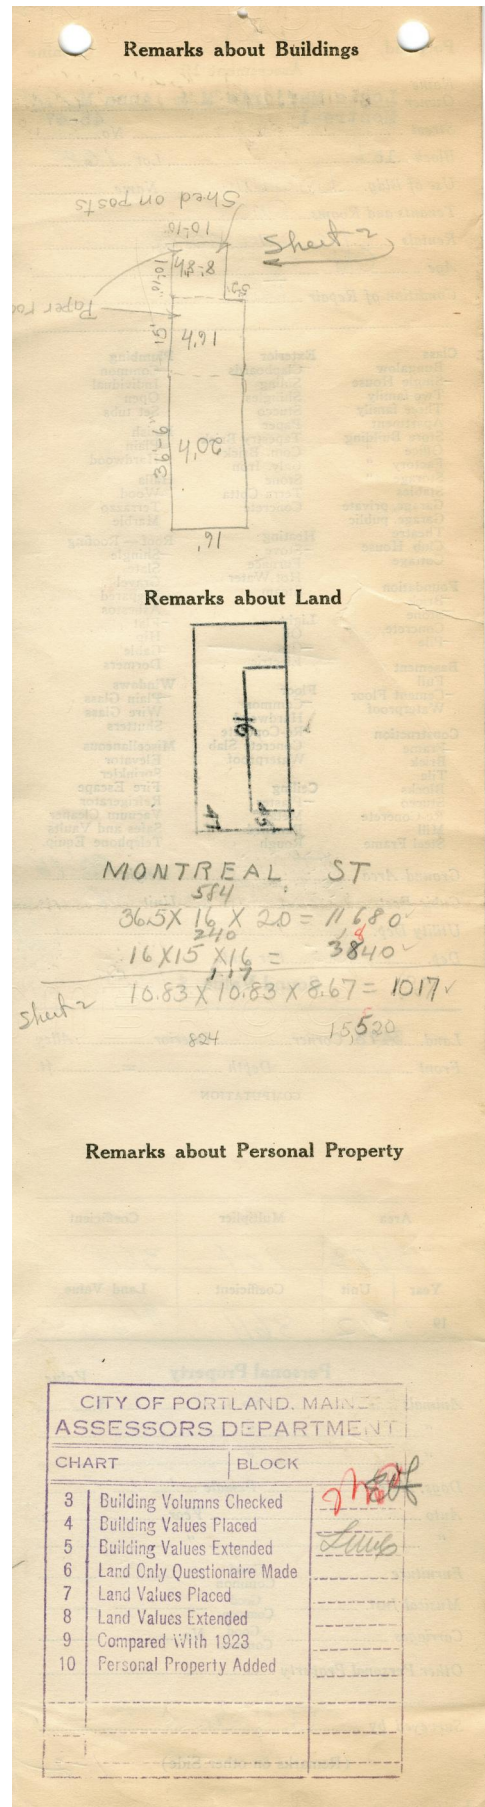 Remarks about Buildings
Shed on posts
10-10"
Sheet 2
10-10"
h8-8
Paper
15'
h,91
36'-6"
h,20
16'
Remarks about Land
91
47
MONTREAL ST
584
36.5 X 16 X 20 = 11680
240
16 X 15 X 16 = 3840
8
117
Sheet 2
10.83 X 10.83 X 8.67 = 1017
824
15,520
Remarks about Personal Property
CITY OF PORTLAND, MAINE
ASSESSORS DEPARTMENT
CHART BLOCK
3 Building Volumns Checked
4 Building Values Placed
5 Building Values Extended
6 Land Only Questionaire Made
7 Land Values Placed
8 Land Values Extended
9 Compared With 1923
10 Personal Property Added